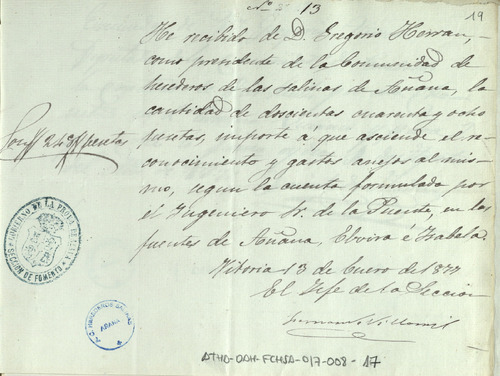 Nº 13
19
He recibido de D. Gregorio Herran,
como presidente de la Comunidad de
herederos de las Salinas de Añana, la
cantidad de doscientas cuarenta y ocho
pesetas, importe á que asciende el re-
conocimiento y gastos anejos al mis-
mo, segun la cuenta formulada por
el Ingeniero Sr. de la Puente, en las
fuentes de Añana, Elvira é Ysabela.
Vitoria 13 de Enero de 1877
El Jefe de la Seccion
Son 248 pesetas
GOBIERNO DE LA PROVA DE
SECCION DE FOMENTO
AÑANA
ATHA-DAH-FCHSA-017-008-17